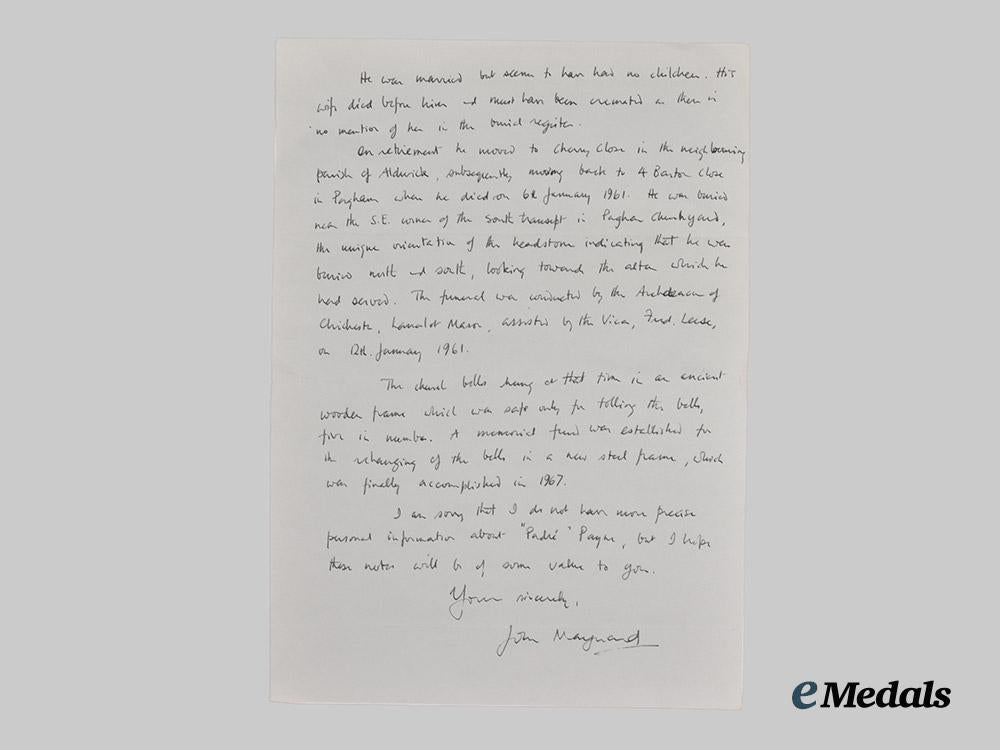 He was married but seems to have had no children. His
wife died before him and must have been cremated as there is
no mention of her in the burial register.
On retirement he moved to Cherry Close in the neighbouring
parish of Aldwick, subsequently moving back to 4 Barton Close
in Pagham where he died on 6th January 1961. He was buried
near the S.E. corner of the South transept in Pagham Churchyard,
the unique orientation of the headstone indicating that he was
buried north and south, looking toward the altar which he
had served. The funeral was conducted by the Archdeacon of
Chichester, Lancelot Mason, assisted by the Vicar, Fred. Lease,
on 12th. January 1961.
The church bells hung at that time in an ancient
wooden frame which was safe only for tolling the bells,
five in number. A memorial fund was established for
the rehanging of the bells in a new steel frame, which
was finally accomplished in 1967.
I am sorry that I do not have more precise
personal information about "Padré" Payne, but I hope
these notes will be of some value to you.
Yours sincerely,
John Maynard
eMedals